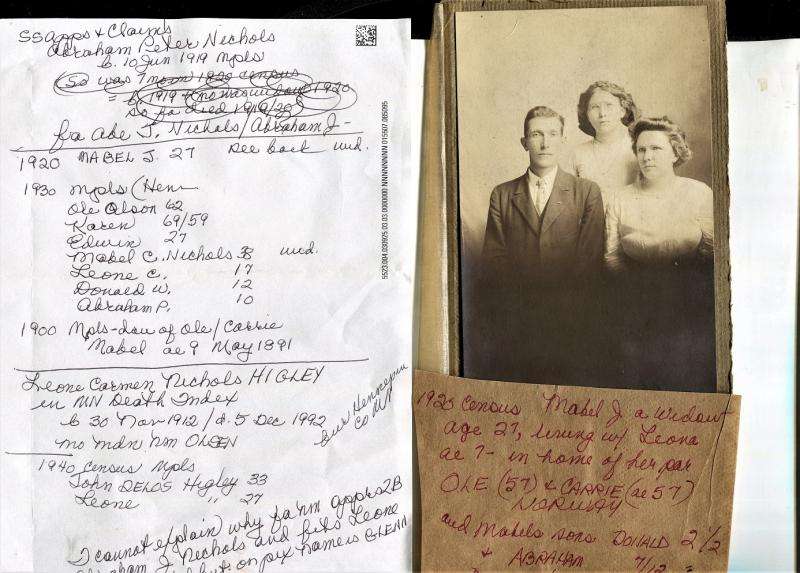 SS apps + Claims
Abraham Peter Nichols
b. 10 Jun 1919 Mpls
(So was 7 mo in 1920 census
= b 1919 + mo was wid by 1920
So fa died 1919/20
fa Abe J. Nichols/Abraham J-
1920 MABEL J. 27 See back wid.
1930 Mpls (Henn
Ole Olson 62
Karen 69/59
Edwin 27
Mabel C. Nichols 38 wid.
Leone C. 17
Donald W. 12
Abraham P. 10
1900 Mpls - dau of Ole/Carrie
Mabel ae 9 May 1891
Leone Carmen Nichols HIGLEY
in MN Death Index
b 30 Nov 1912 / d. 5 Dec 1992
mo mdn nm OLSEN
bur Hennepin
Co MN
1940 Census Mpls
John DELOS Higley 33
Leone " 27
I cannot explain why fa nm apprs 2B
Abraham J Nichols and fits Leone
but on pix name is GLENN
5523 004 030925 03.03 000000 NNNNNNNN 015507 085095
1920 Census Mabel J a Widow
age 27, living w/ Leona
ae 7 - in home of her par
OLE (57) & CARRIE (ae 57)
NORWAY
and Mabels sons DONALD 2 1/2
& ABRAHAM 7/12